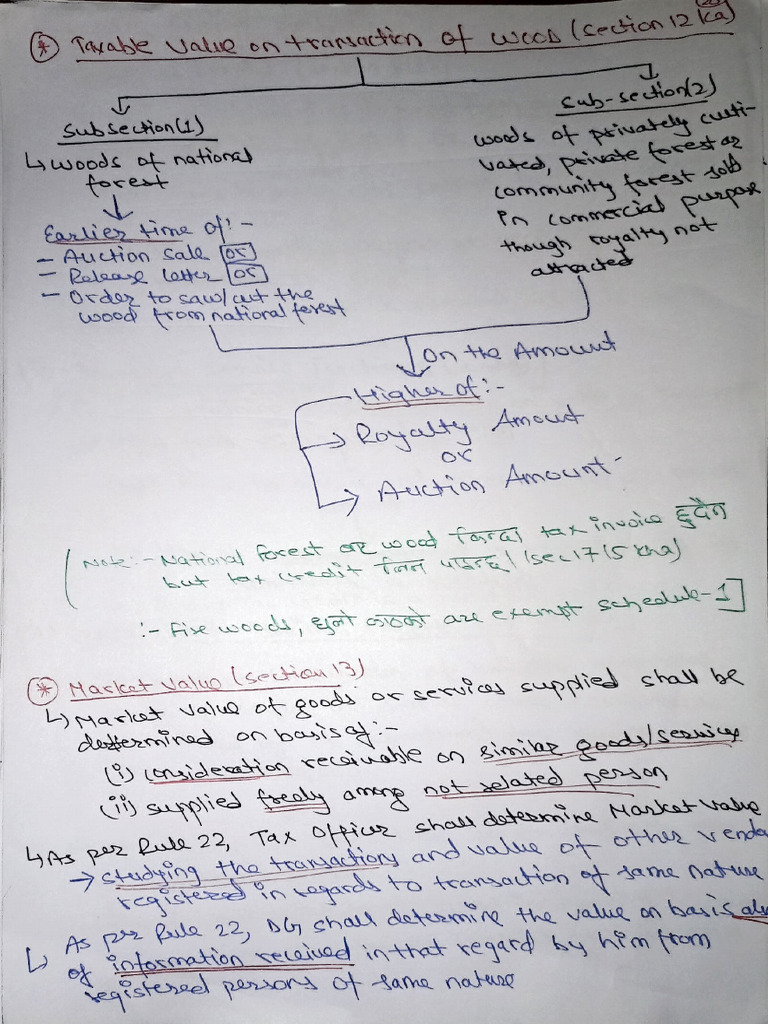 * Taxable Value on transaction of wood (section 12 ka)
Subsection(1)
↳ woods of national
forest
Earlier time of:-
- Auction sale or
- Release letter or
- Order to saw/cut the
wood from national forest
Sub-section(2)
woods of privately culti-
vated, private forest or
community forest sold
in commercial purpose
though royalty not
attracted
On the Amount
Higher of:-
→ Royalty Amount
or
→ Auction Amount
Note:- National forest बाट wood किन्दा tax invoice हुदैन
but tax credit लिन पाइन्छ। (sec 17(5 kha)
:- Fire woods, are exempt schedule-1]
* Market Value (section 13)
↳ Market value of goods or services supplied shall be
determined on basis of:-
(i) consideration receivable on similar goods/services
(ii) supplied freely among not related person
↳ As per Rule 22, Tax Officer shall determine Market value
→ studying the transactions and value of other vendor
registered in regards to transaction of same nature
↳ As per Rule 22, DG shall determine the value on basis also
of information received in that regard by him from
registered persons of same nature